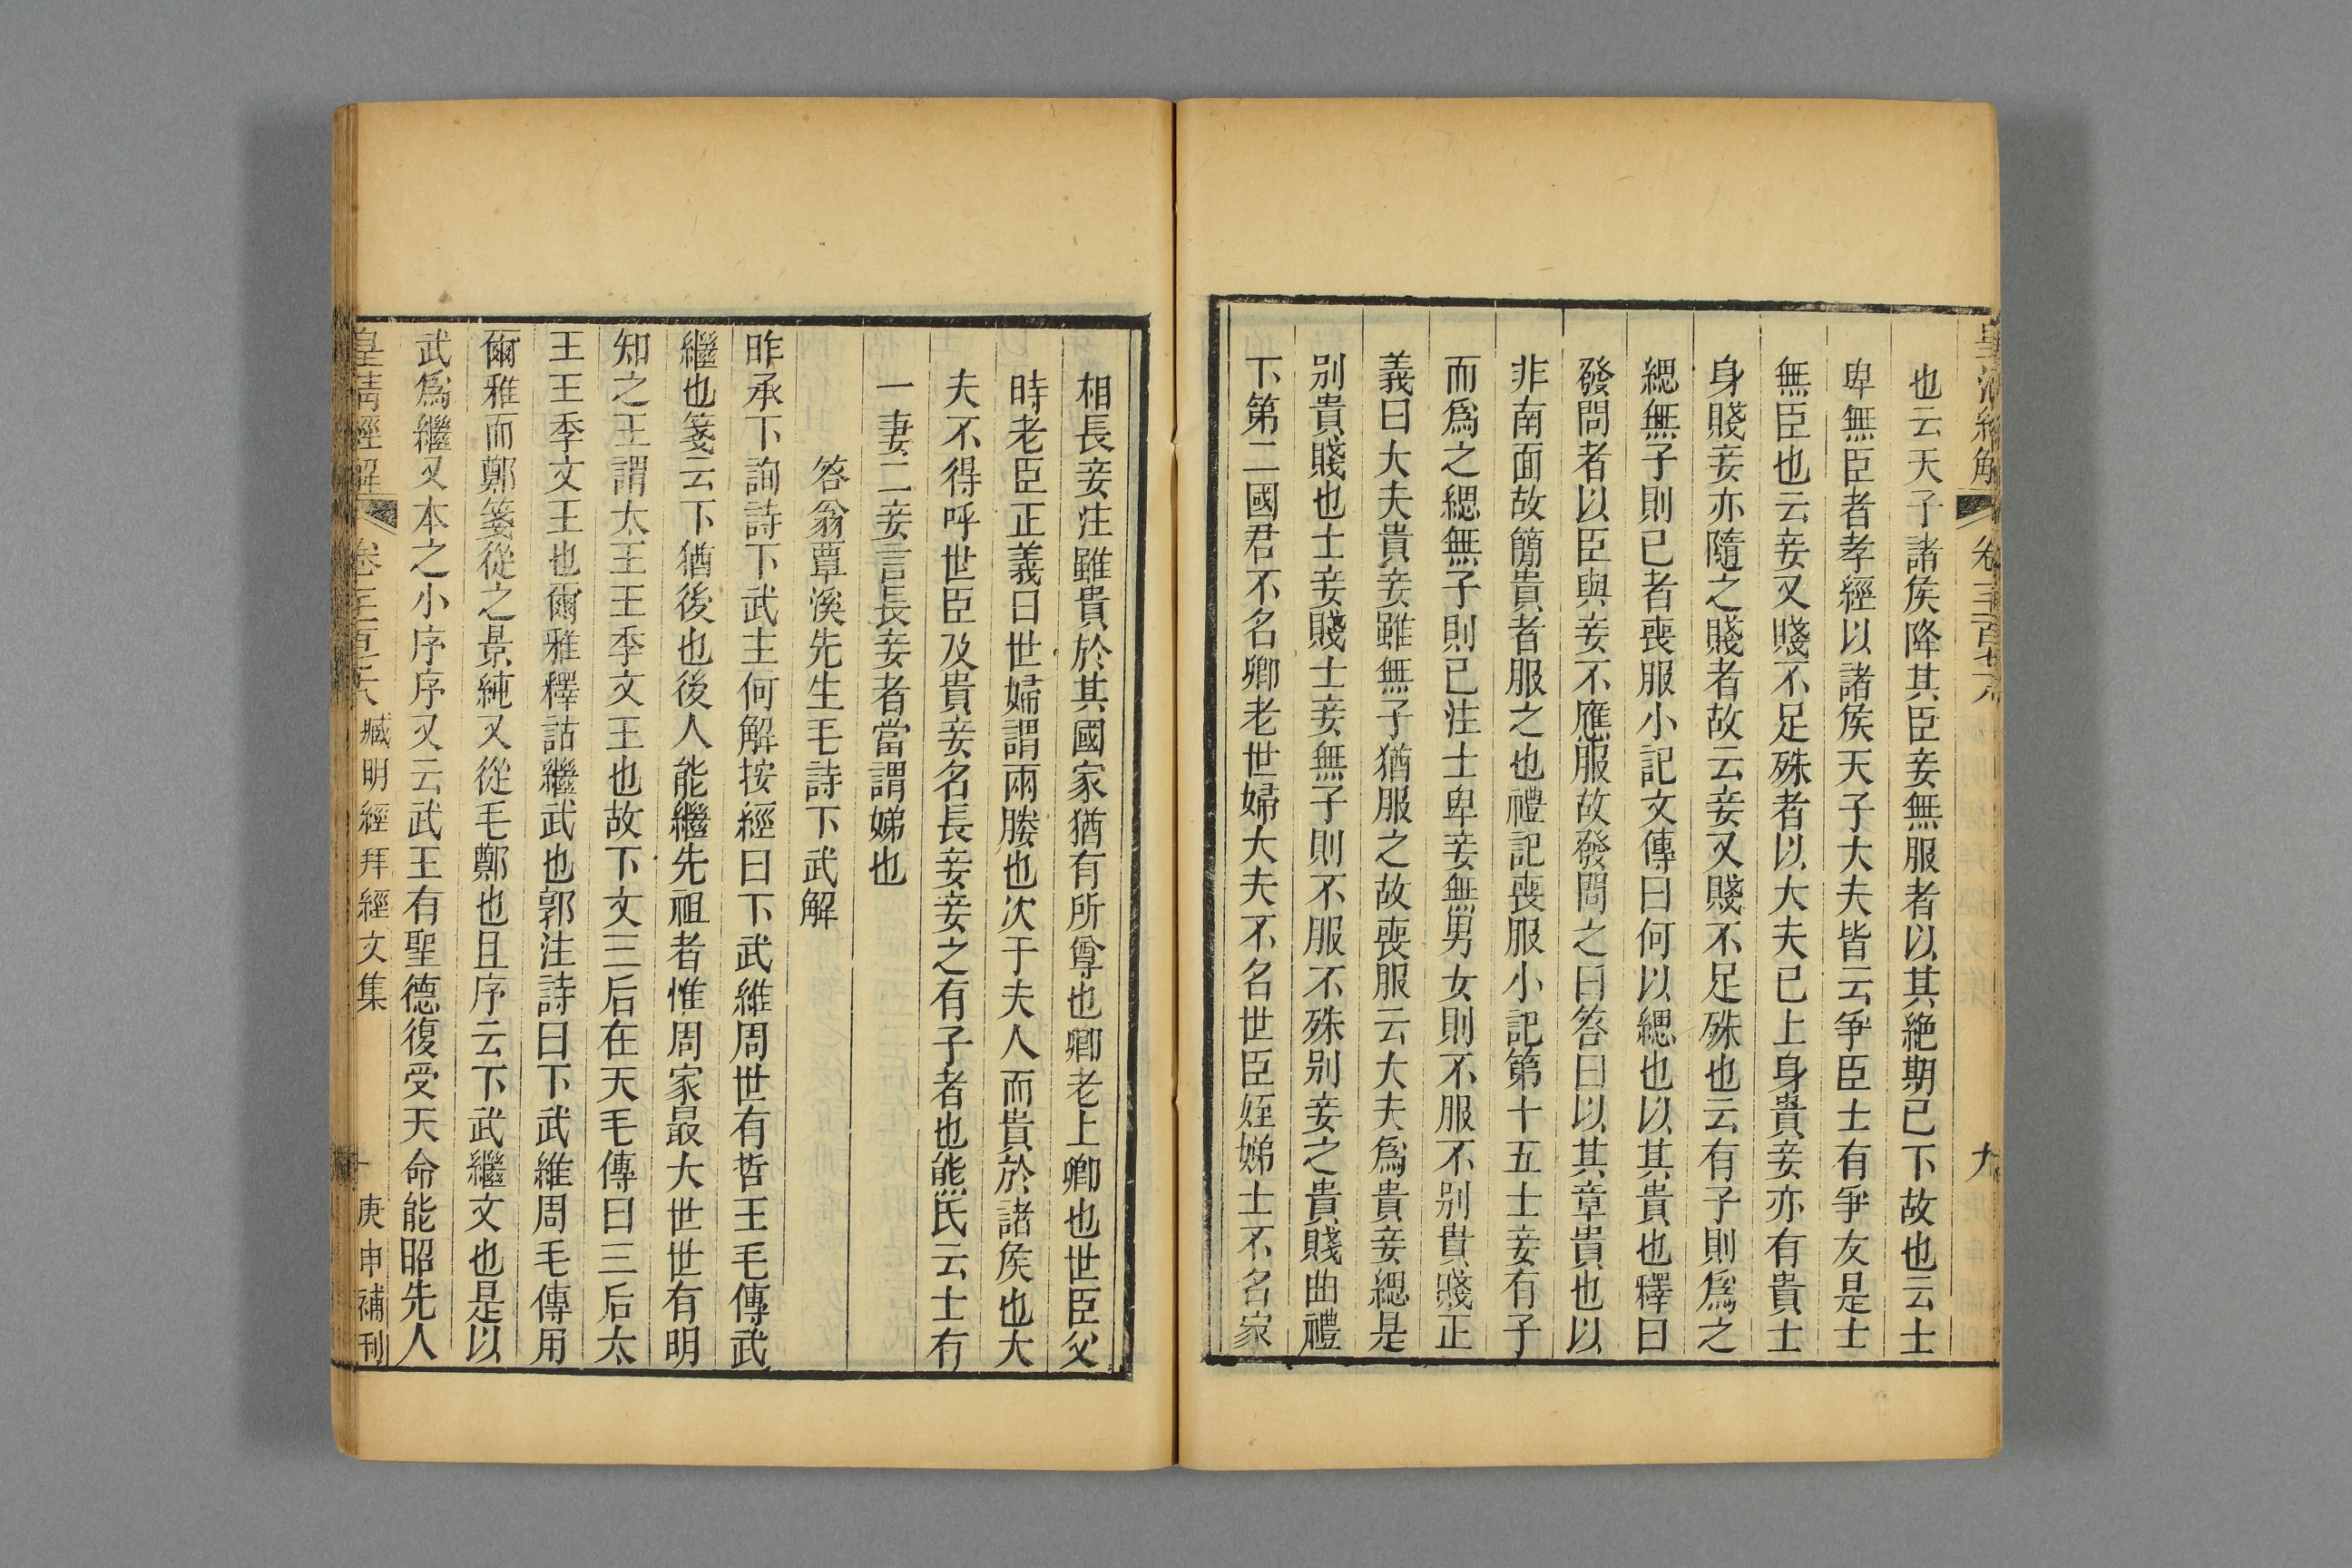 皇清經解
卷三百十六
九
也云天子諸矦降其臣妾無服者以其絶期已下故也云士
卑無臣者孝經以諸矦天子大夫皆云爭臣士有爭友是士
無臣也云妾又賤不足殊者以大夫已上身貴妾亦有貴士
身賤妾亦隨之賤者故云妾又賤不足殊也云有子則爲之
緦無子則已者喪服小記文傳曰何以緦也以其貴也釋曰
發問者以臣與妾不應服故發問之曰答曰以其章貴也以
非南面故簡貴者服之也禮記喪服小記第十五士妾有子
而爲之緦無子則已注士卑妾無男女則不服不别貴賤正
義曰大夫貴妾雖無子猶服之故喪服云大夫爲貴妾緦是
别貴賤也士妾賤士妾無子則不服不殊别妾之貴賤曲禮
下第二國君不名卿老世婦大夫不名世臣姪娣士不名家
相長妾注雖貴於其國家猶有所尊也卿老上卿也世臣父
時老臣正義曰世婦謂兩媵也次于夫人而貴於諸矦也大
夫不得呼世臣及貴妾名長妾妾之有子者也熊氏云士有
一妻二妾言長妾者當謂娣也
答翁覃溪先生毛詩下武解
昨承下詢詩下武主何解按經曰下武維周世有哲王毛傳武
繼也箋云下猶後也後人能繼先祖者惟周家最大世世有明
知之王謂太王王季文王也故下文三后在天毛傳曰三后太
王王季文王也爾雅釋詁繼武也郭注詩曰下武維周毛傳用
爾雅而鄭箋從之景純又從毛鄭也且序云下武繼文也是以
武爲繼又本之小序序又云武王有聖德復受天命能昭先人
皇清經解
臧明經拜經文集
庚申補刊